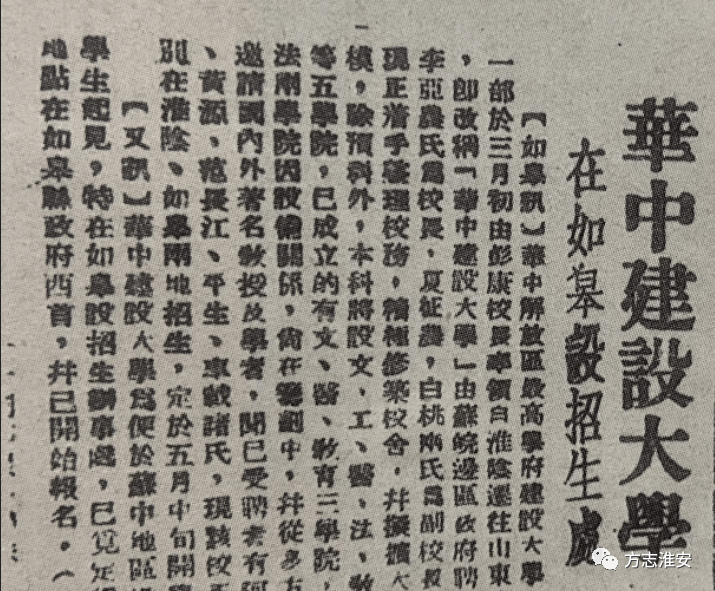 華中建設大學
在如皋設招生處
【如皋訊】華中解放區最高學府建設大學
一部於三月初由彭康校長率領自淮陰遷往山東
，卽改稱「華中建設大學」由蘇皖邊區政府聘
李亞農氏爲校長，夏征農，白桃兩氏爲副校長
現正着手整理校務，積極修築校舍，并擬擴大
模，除預科外，本科將設文、工、醫、法、教
等五學院，已成立的有文、醫、教育三學院，
法兩學院因設備關係，尙在籌劃中，幷從多方
邀請國內外著名敎授及學者，聞已受聘者有
、黃源、范長江、平生、車載諸氏，現該校
別在淮陰、如皋兩地招生，定於五月中旬開
【又訊】華中建設大學爲便於蘇中地區
學生起見，特在如皋設招生辦事處，已覓定
地點在如皋縣政府西首，幷已開始報名。（
方志淮安